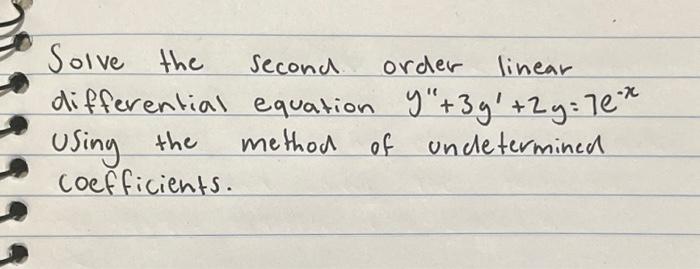 Solve the second order linear
differential equation y"+3y'+2y=7e^-x
using the method of undetermined
coefficients.